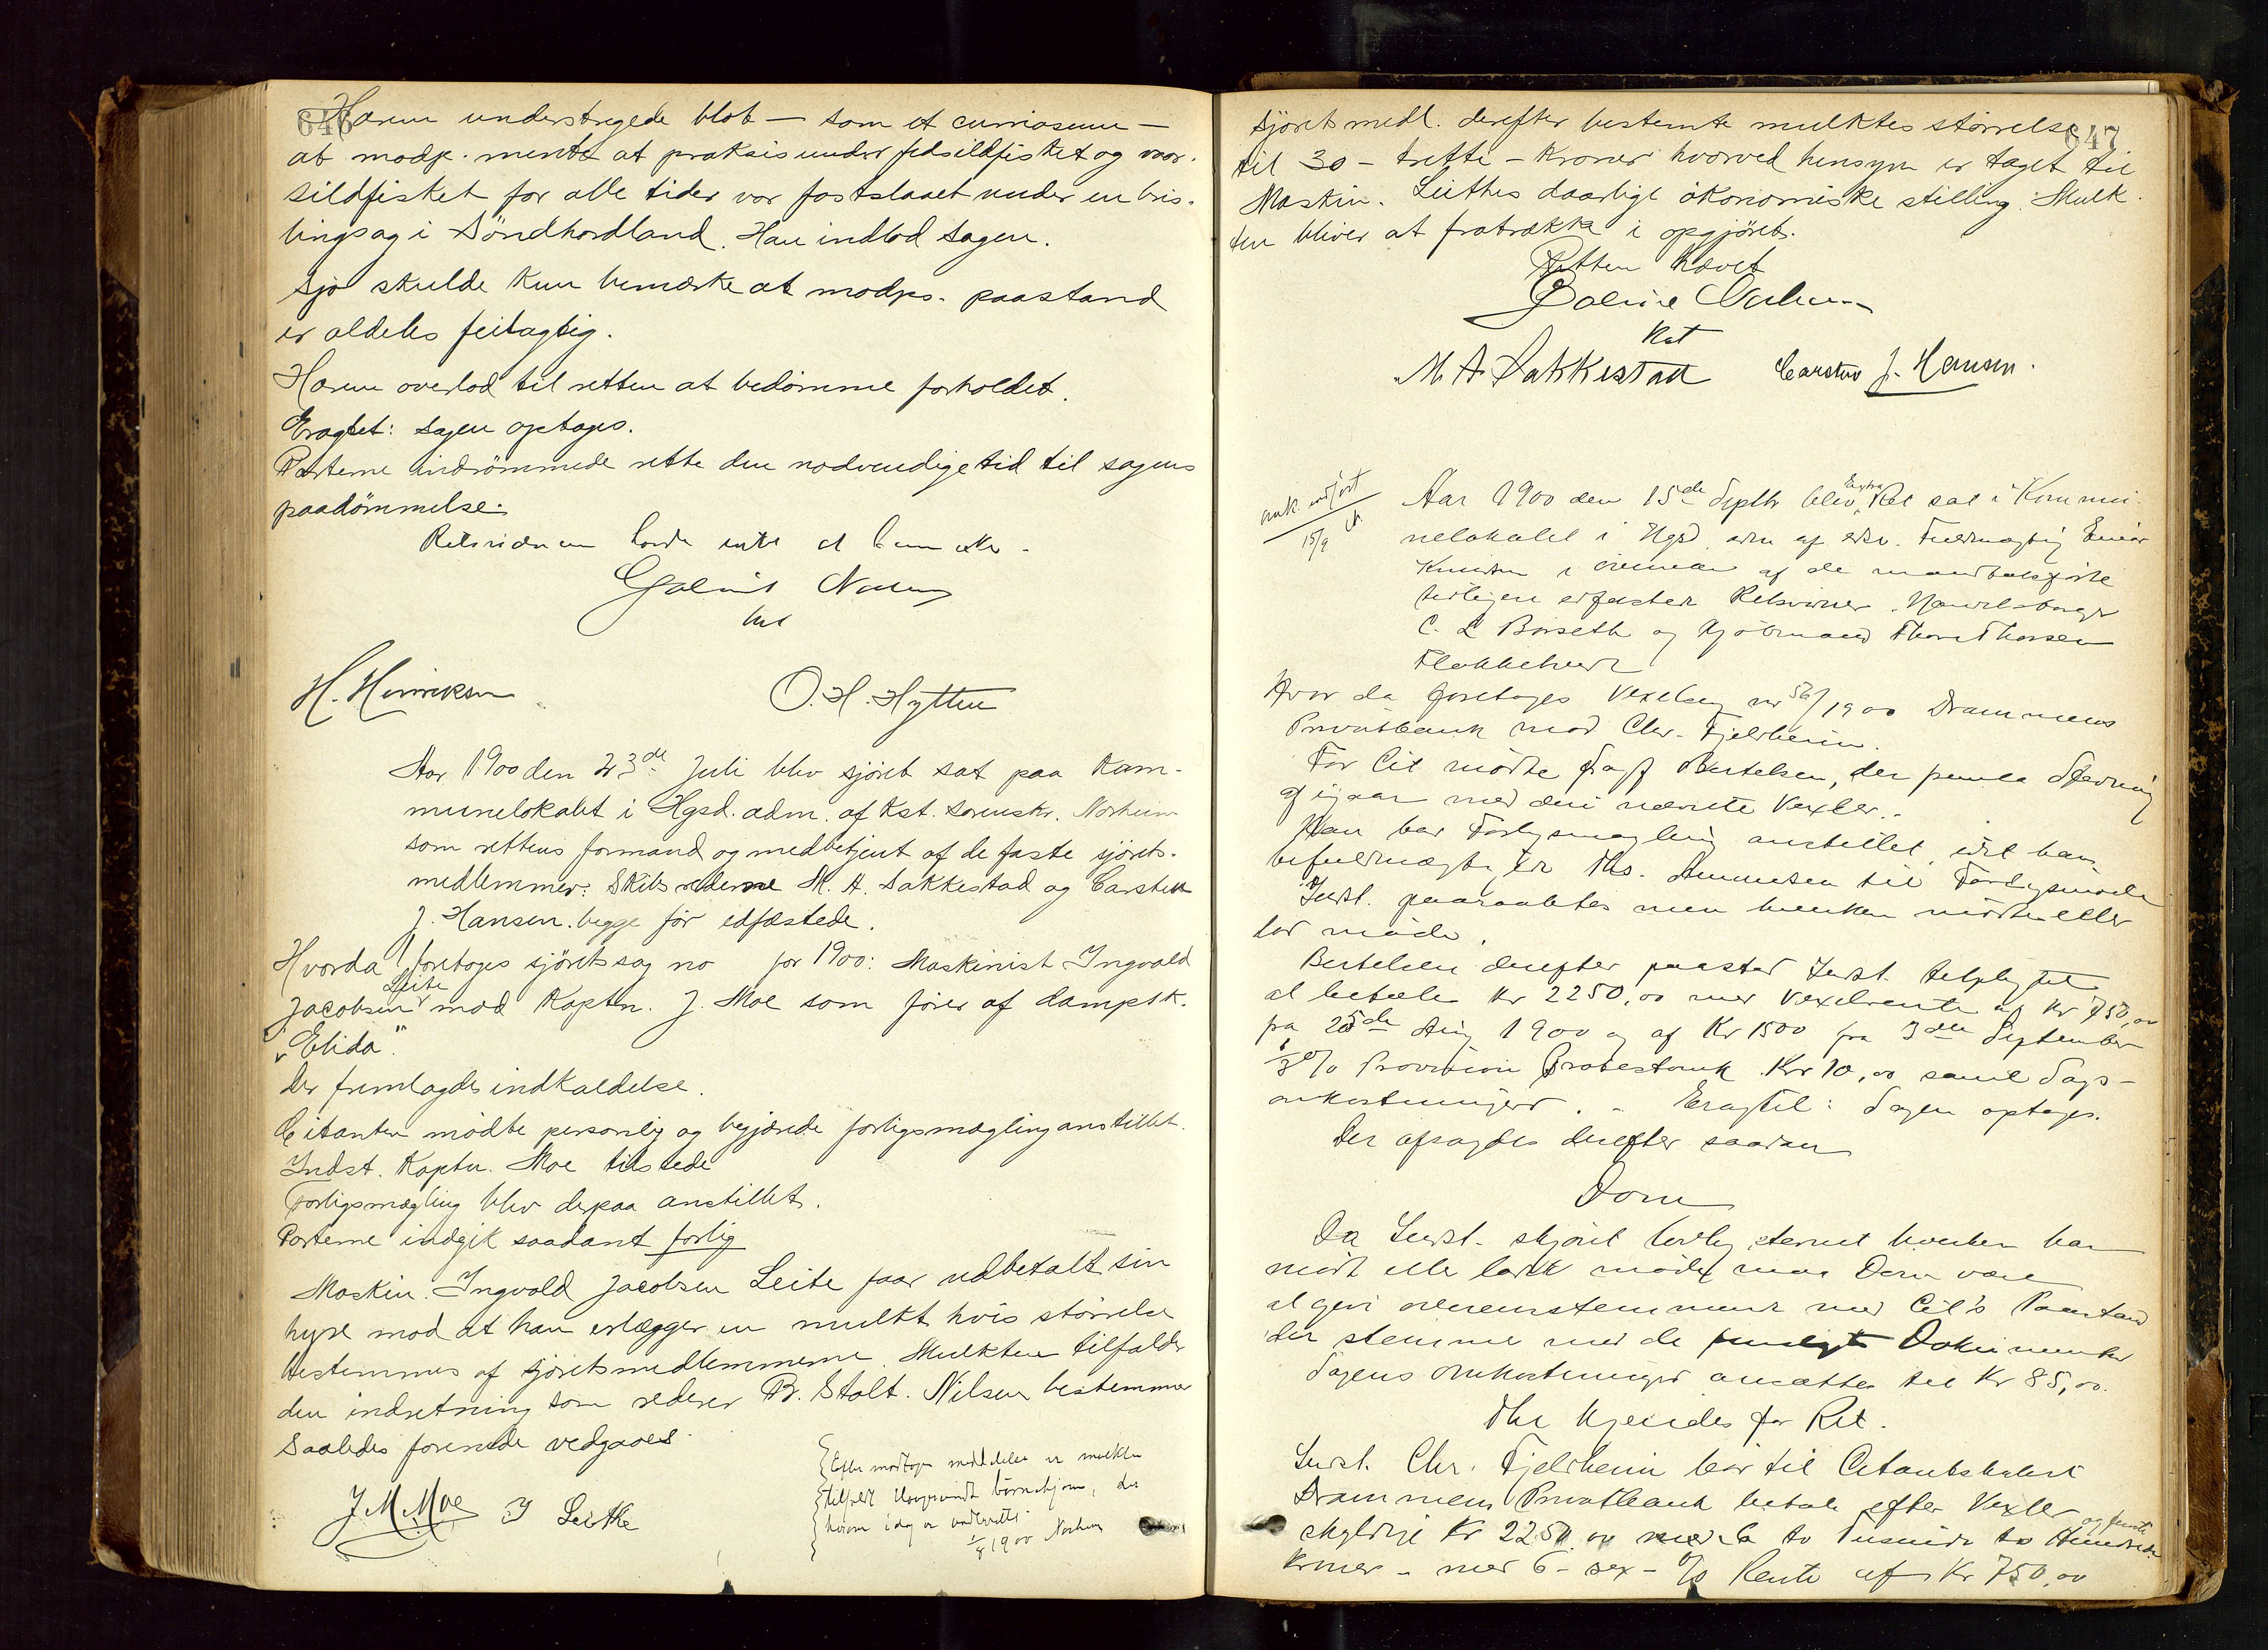 646
Harem understregede blot — som et curiosum —
at modp. mente at praksis under fedsildfisket og vaar-
sildfisket for alle tider var fastslaaet under en bris-
lingsag i Söndhordland. Han indlod sagen.
Sjo skulde kun bemærke at modps. paastand
er aldeles feilagtig.
Harem overlod til retten at bedømme forholdet.
Eragtet: sagen optages.
Parterne indrömmede rette den nødvendige tid til sagens
paadömmelse.
Retsvidnerne havde intet at bemærke.
Norheim
kst
H. Henriksen
O. H. Hytten
Aar 1900 den 23de Juli blev sjöret sat paa Kom-
munelokalet i Hgsd. adm. af kst. sorenskr. Norheim
som rettens formand og medbetjent af de faste sjörets-
medlemmer: Skibsrederne M. A. Sakkestad og Carsten
J. Hansen. begge för edfæstede.
Hvorda! foretoges sjöretssag no for 1900: Maskinist Ingvald
Leite
Jacobsen mod Kaptn. J. Moe som förer af dampsk.
"Elida".
Der fremlagdes indkaldelse.
Citanten mödte personlig og begjærede forligsmægling anstillet.
Indst. Kaptn. Moe tilstede
Forligsmægling blev derpaa anstillet.
Parterne indgik saadant forlig
Maskin. Ingvald Jacobsen Leite faar udbetalt sin
hyre mod at han erlægger en mulkt hvis störrelse
bestemmes af sjöretsmedlemmerne. Mulkten tilfalder
den indretning som rederen B. Stolt. Nilsen bestemmer
Saaledes forenede vedgaaes.
J M Moe I Leithe
Efter modtagen meddelelse er mulkten
tilfaldt Haugesunds börnehjem, der
herom idag er underrettet
1/8 1900 Norheim
647
sjörets medl. derefter bestemte mulktes störrelse
til 30 - tretti - kroner hvorved hensyn er taget til
Maskin. Leithes daarlige ökonomiske stilling. Mulk-
ten bliver at fratrække i opgjöret.
Retten hævet
Norheim
kst
M. A. Sakkestad Carsten J. Hansen.
ank. indfört
15/9
Aar 1900 den 15de Septbr blev Extra Ret sat i Kommu-
nelokalet i Hgsd. adm af edsv. Fuldmægtig Einar
Knudsen i overvær af de mandtalsførte
tidligere edfæstede Retsvidner Handelsborger
C. L Borseth og Kjöbmand Thore Thorsen
Flakkehavn
Hvor da foretoges Vexelsag nr 56/1900 Drammens
Privatbank mod Chr. Fjeldheim.
For Cit mödte Sagf Bertelsen, der fremla Stevning
af igaar med deri nævnte Vexler.
Han bar Forligsmægling anstillet, idet han
befuldmægtigede Ths. Amundsen til Forligsmøde
Indst. paaraabtes men hverken mödte eller
lod møde.
Bertelsen derefter paastod Indst. tilpligtet
at betale Kr 2250,00 med Vexelrente af Kr 750,00
fra 25de Aug 1900 og af Kr 1500 fra 3die September
1/3 % Provision Protestomk. Kr 10,00 samt Sags-
omkostninger. - Eragtet: Sagen optages.
Der afsagdes derefter saadan
Dom
Da Indst. skjönt lovlig stevnet hverken har
mödt eller ladet møde, maa Dom være
at give overensstemmende med Cit's Paastand
der stemmer med de fremlagte Dokumenter
Sagens Omkostninger ansættes til Kr 85,00.
Thi kjendes for Ret.
Indst. Chr. Fjeldheim bör til Citantskabet
Drammens Privatbank betale efter Vexler
skyldige Kr 2250.00 to Tusinde to Hundrede og femti
Kroner - med 6 - sex - % Rente af Kr 750,00